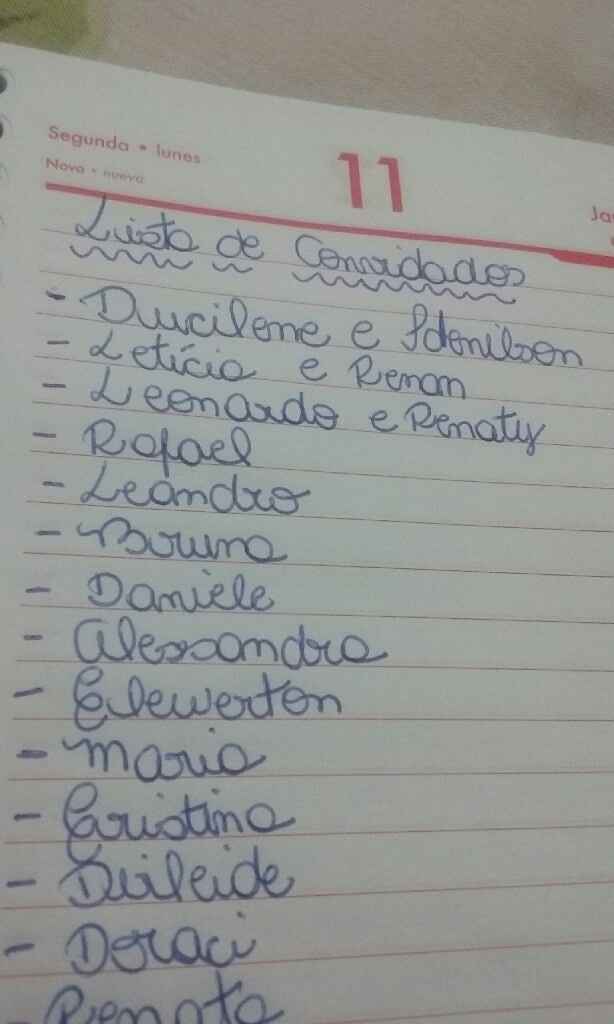 Segunda • lunes
Nova • nueva
11
Ja
Lista de Convidados
- Ducilene e Idenilson
- Letícia e Renan
- Leonardo e Renaty
- Rafael
- Leandro
- Bruna
- Daniele
- Alessandra
- Clewerton
- Maria
- Cristina
- Duleide
- Doraci
- Renata